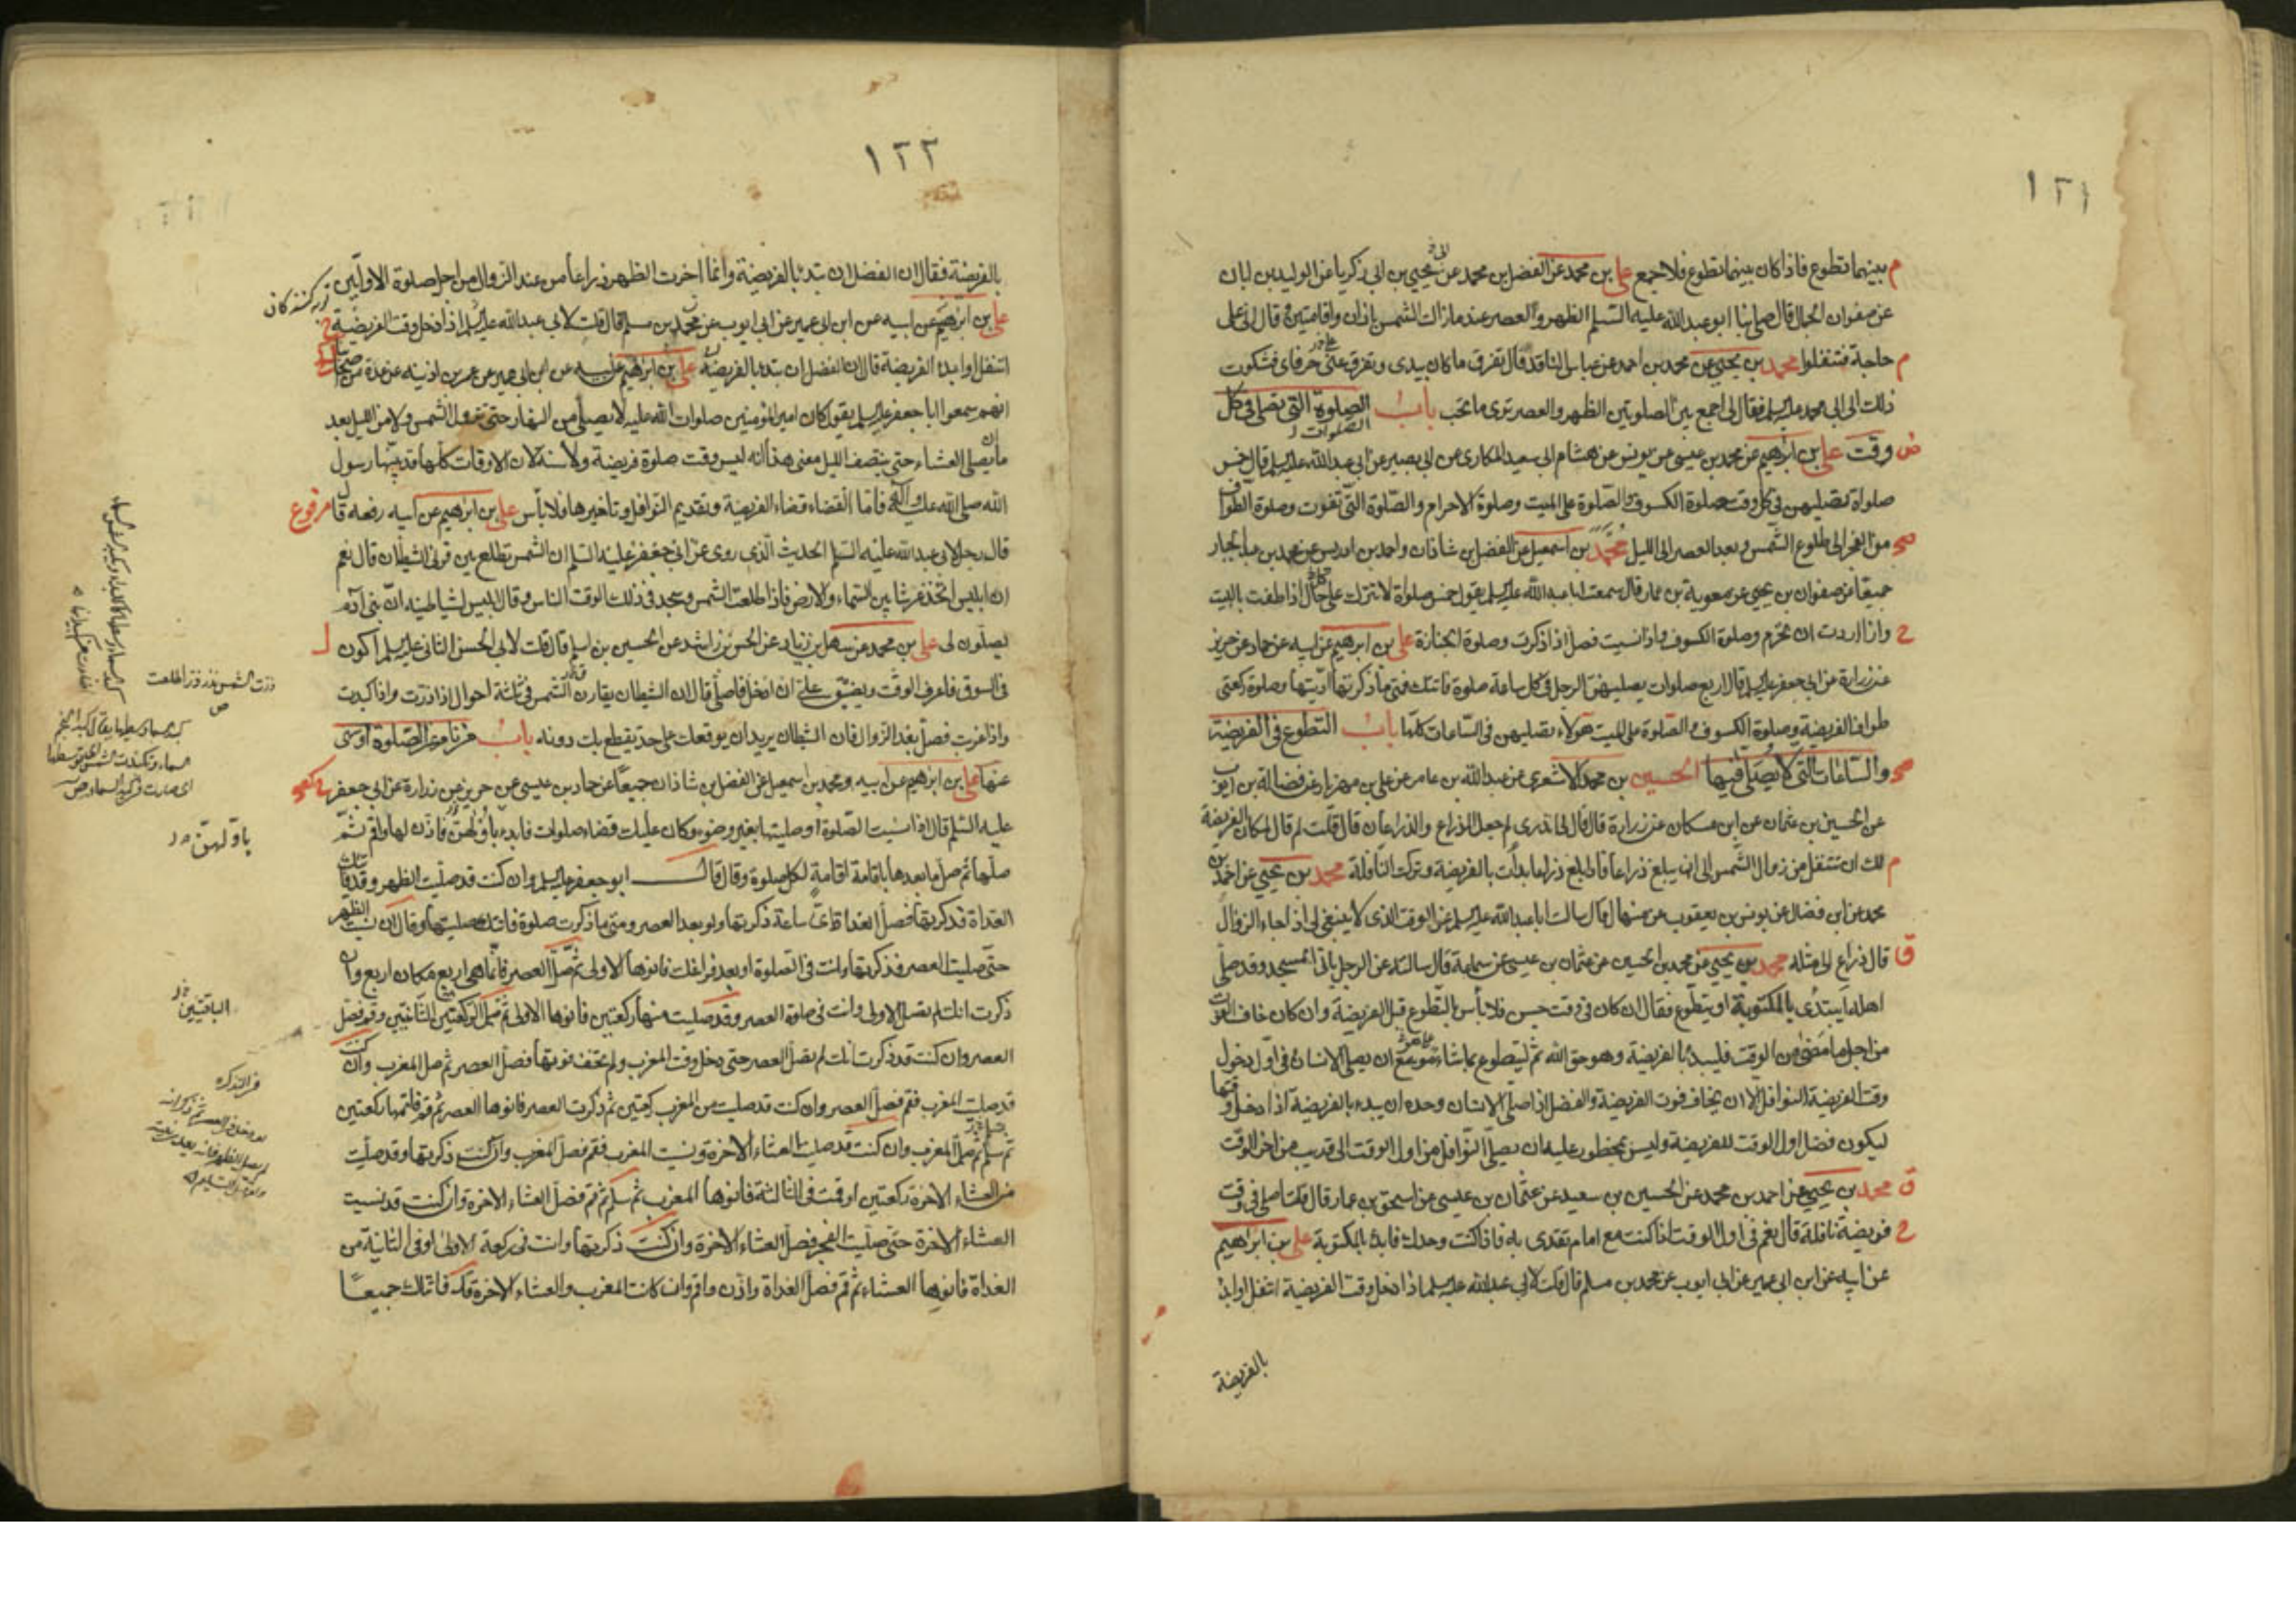 ١٢١
بينهما تطوع فاذا كان بينهما تطوع فلا جمع على بن محمد عن الفضل بن محمد عن يحيى بن ابى زكريا عن الوليد بن ابان
عن صفوان الجمال قال صلى بنا ابو عبد الله عليه السلم الظهر و العصر عند ما زالت الشمس باذان واقامتين و قال انى على
حاجة فتنفلوا محمد بن يحيى عن محمد بن احمد عن عباس الناقد قال تفرق ما كان بيدى و تفرق عنى حرفاى فشكوت
ذلك الى ابى محمد عليه السلم فقال لى اجمع بين الصلوتين الظهر و العصر ترى ما تحب باب الصلوة التى تصلى فى كل
وقت على بن ابرهيم عن محمد بن عيسى عن يونس عن هشام ابى سعيد المكارى عن ابى بصير عن ابى عبد الله عليه السلم قال خمس
صلواة تصليهن فى كل وقت صلوة الكسوف والصلوة على الميت وصلوة الاحرام والصلوة التى تفوت وصلوة الطواف
من الفجر الى طلوع الشمس و بعد العصر الى الليل محمد بن اسمعيل عن الفضل بن شاذان واحمد بن ادريس عن محمد بن عبد الجبار
جميعا عن صفوان بن يحيى عن معوية بن عمار قال سمعت ابا عبد الله عليه السلم يقول خمس صلواة لا تترك على حال اذا طفت بالبيت
واذا اردت ان تحرم وصلوة الكسوف واذا نسيت فصل اذا ذكرت وصلوة الجنازة على بن ابرهيم عن ابيه عن حماد عن حريز
عن زرارة عن ابى جعفر عليه السلم قال اربع صلوات يصليهن الرجل فى كل ساعة صلوة فاتتك فمتى ما ذكرتها اديتها وصلوة ركعتى
طواف الفريضة وصلوة الكسوف والصلوة على الميت هؤلاء تصليهن فى الساعات كلها باب التطوع فى الفريضة
والساعات التى لا يصلى فيها الحسين بن محمد الاشعرى عن عبد الله بن عامر عن على بن مهزيار عن فضالة بن ايوب
عن الحسين بن عثمان عن ابن مسكان عن زرارة قال قال لى اتدرى لم جعل الذراع والذراعان قال قلت لم قال لمكان الفريضة
لك ان تتنفل من زوال الشمس الى ان يبلغ ذراعا فاذا بلغ ذراعا بدأت بالفريضة وتركت النافلة محمد بن يحيى عن احمد بن
محمد عن ابن فضال عن يونس بن يعقوب عن منهال قال سالت ابا عبد الله عليه السلم عن الوقت الذى لا ينبغى لى اذا جاء الزوال
قال ذراع الى مثله محمد بن يحيى عن محمد بن الحسين عن عثمان بن عيسى عن سماعة قال سالته عن الرجل ياتى المسجد وقد صلى
اهله ايبتدى بالمكتوبة او يتطوع فقال ان كان فى وقت حسن فلا بأس بالتطوع قبل الفريضة وان كان خاف الفوت
من اجل ما مضى من الوقت فليبدء بالفريضة وهو حق الله ثم ليتطوع بما شاء موسع ان يصلى الانسان فى اول دخول
وقت الفريضة النوافل الا ان يخاف فوت الفريضة والفضل اذا صلى الانسان وحده ان يبدء بالفريضة اذا دخل وقتها
ليكون فضل اول الوقت للفريضة وليس بمحظور عليه ان يصلى النوافل من اول الوقت الى قريب من اخر الوقت
محمد بن يحيى عن احمد بن محمد عن الحسين بن سعيد عن عثمان بن عيسى عن اسحق بن عمار قال قلت اصلى فى وقت
فريضة نافلة قال نعم فى اول الوقت اذا كنت مع امام تقتدى به فاذا كنت وحدك فابدء بالمكتوبة على بن ابراهيم
عن ابيه عن ابن ابى عمير عن ابى ايوب عن محمد بن مسلم قال قلت لابى عبد الله عليه السلم اذا دخل وقت الفريضة اتنفل او ابدء
بالفريضة
١٢٢
بالفريضة فقال ان الفضل ان تبدئ بالفريضة وانما اخرت الظهر ذراعا من عند الزوال من اجل صلوة الاوابين
على بن ابرهيم عن ابيه عن ابن ابى عمير عن ابى ايوب عن محمد بن مسلم قال قلت لابى عبد الله عليه السلم اذا دخل وقت الفريضة
اتنفل او ابدء الفريضة قال ان الفضل ان تبدء بالفريضة على بن ابرهيم عن ابيه عن ابن ابى عمير عن عمر بن اذينة عن عدة
انهم سمعوا ابا جعفر عليه السلم يقول كان امير المؤمنين صلوات الله عليه لا يصلى من النهار حتى تزول الشمس ولا من الليل بعد
ما يصلى العشاء حتى ينتصف الليل معنى هذا انه ليس وقت صلوة فريضة ولا سنة لان الاوقات كلها قد بينها رسول
الله صلى الله عليه واله فاما القضاء قضاء الفريضة وتقديم النوافل وتاخيرها فلا بأس على بن ابرهيم عن ابيه رفعه قال مرفوع
قال رجل لابى عبد الله عليه السلم الحديث الذى روى عن ابى جعفر عليه السلم ان الشمس تطلع بين قرنى الشيطان قال نعم
ان ابليس اتخذ عرشا بين السماء والارض فاذا طلعت الشمس وسجد فى ذلك الوقت الناس وقال ابليس لشياطينه ان بنى آدم
يصلون لى على بن محمد عن سهل بن زياد عن الحسن بن راشد عن الحسين بن اسلم قال قلت لابى الحسن الثانى عليه السلم اكون
فى السوق فاعرف الوقت ويضيق على ان ادخل فاصلى قال ان الشيطان يقارن الشمس فى ثلثة احوال اذا ذرت واذا كبدت
واذا غربت فصل بعد الزوال فان الشيطان يريد ان يوقعك على حد يقطع بك دونه باب من نام عن الصلوة او سهى
عنها على بن ابرهيم عن ابيه ومحمد بن اسمعيل عن الفضل بن شاذان جميعا عن حماد بن عيسى عن حريز عن زرارة عن ابى جعفر
عليه السلم قال اذا نسيت الصلوة او صليتها بغير وضوء وكان عليك قضاء صلوات فابدء باولهن فاذن لها واقم ثم
صلها ثم صل ما بعدها باقامة اقامة لكل صلوة وقال قال ابو جعفر عليه السلم وان كنت قد صليت الظهر وقد فاتتك
الغداة فذكرتها فصل الغداة اى ساعة ذكرتها ولو بعد العصر ومتى ما ذكرت صلوة فاتتك صليتها وقال ان نسيت الظهر
حتى صليت العصر فذكرتها وانت فى الصلوة او بعد فراغك فانوها الاولى ثم صل العصر فانما هى اربع مكان اربع وان
ذكرت انك لم تصل الاولى وانت فى صلوة العصر وقد صليت منها ركعتين فانوها الاولى ثم صل الركعتين الثانيتين وقم فصل
العصر وان كنت قد ذكرت انك لم تصل العصر حتى دخل وقت المغرب ولم تخف فوتها فصل العصر ثم صل المغرب وان كنت
قد صليت المغرب فقم فصل العصر وان كنت قد صليت من المغرب ركعتين ثم ذكرت العصر فانوها العصر ثم قم فاتمها ركعتين
ثم سلم ثم صل المغرب وان كنت قد صليت العشاء الاخرة ونسيت المغرب فقم فصل المغرب وان كنت ذكرتها وقد صليت
من العشاء الاخرة ركعتين او قمت فى الثالثة فانوها المغرب ثم سلم ثم قم فصل العشاء الاخرة وان كنت قد نسيت
العشاء الاخرة حتى صليت الفجر فصل العشاء الاخرة وان كنت ذكرتها وانت فى ركعة الاولى او فى الثانية من
الغداة فانوها العشاء ثم قم فصل الغداة واذن واقم وان كانت المغرب والعشاء الاخرة قد فاتتاك جميعا
ذرت الشمس تذر ذر اطلعت
باولهن
الباقيتين